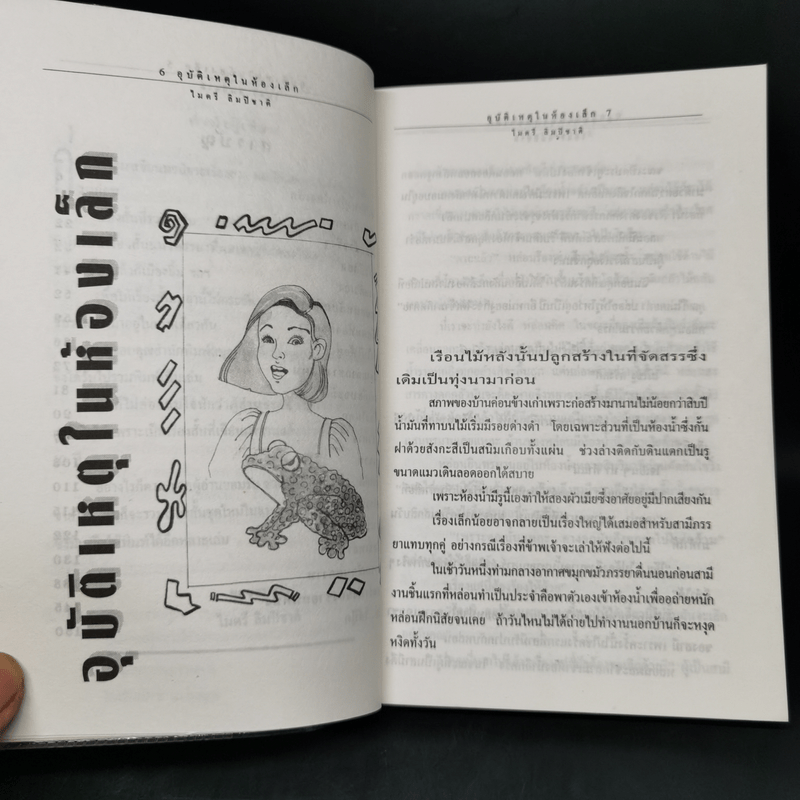 6 อุบัติเหตุในห้องเล็ก
ไมตรี ลิมปิชาติ
อุบัติเหตุในห้องเล็ก
อุบัติเหตุในห้องเล็ก 7
ไมตรี ลิมปิชาติ
เรือนไม้หลังนั้นปลูกสร้างในที่จัดสรรซึ่ง
เดิมเป็นทุ่งนามาก่อน
สภาพของบ้านค่อนข้างเก่าเพราะก่อสร้างมานานไม่น้อยกว่าสิบปี
น้ำมันที่ทาบนไม้เริ่มมีรอยด่างดำ โดยเฉพาะส่วนที่เป็นห้องน้ำซึ่งกั้น
ฝาด้วยสังกะสีเป็นสนิมเกือบทั้งแผ่น ช่วงล่างติดกับดินแตกเป็นรู
ขนาดแมวเดินลอดออกได้สบาย
เพราะห้องน้ำมีรูนี้เองทำให้สองผัวเมียซึ่งอาศัยอยู่มีปากเสียงกัน
เรื่องเล็กน้อยอาจกลายเป็นเรื่องใหญ่ได้เสมอสำหรับสามีภรร
ยาแทบทุกคู่ อย่างกรณีเรื่องที่ข้าพเจ้าจะเล่าให้ฟังต่อไปนี้
ในเช้าวันหนึ่งท่ามกลางอากาศขมุกขมัวภรรยาตื่นนอนก่อนสามี
งานชิ้นแรกที่หล่อนทำเป็นประจำคือพาตัวเองเข้าห้องน้ำเพื่อถ่ายหนัก
หล่อนฝึกนิสัยจนเคย ถ้าวันไหนไม่ได้ถ่ายไปทำงานนอกบ้านก็จะหงุด
หงิดทั้งวัน